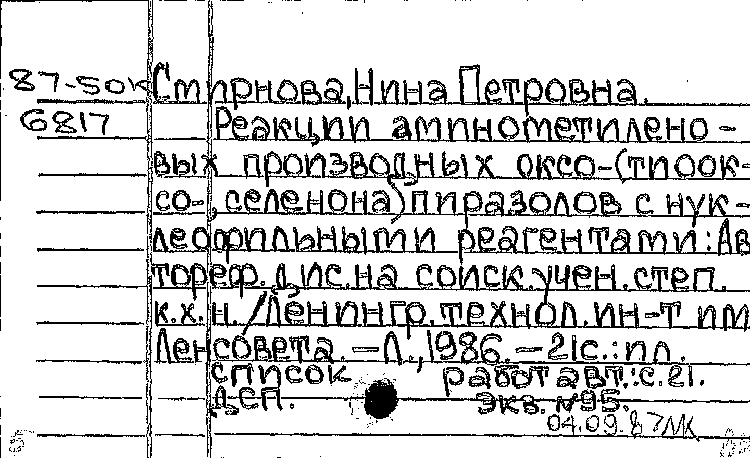 87-50к Смирнова, Нина Петровна.
6817 Реакции аминометилено-
вых производных оксо-(тиоок-
со-, селенона) пиразолов с нук-
леофильными реагентами: Ав
тореф. дис. на соиск. учен. степ.
к.х.н. / Ленингр. технол. ин-т им
Ленсовета. — Л., 1986. — 21с.: ил.
список работ авт.: с. 21.
дсп. экз. №95.
04.09.87